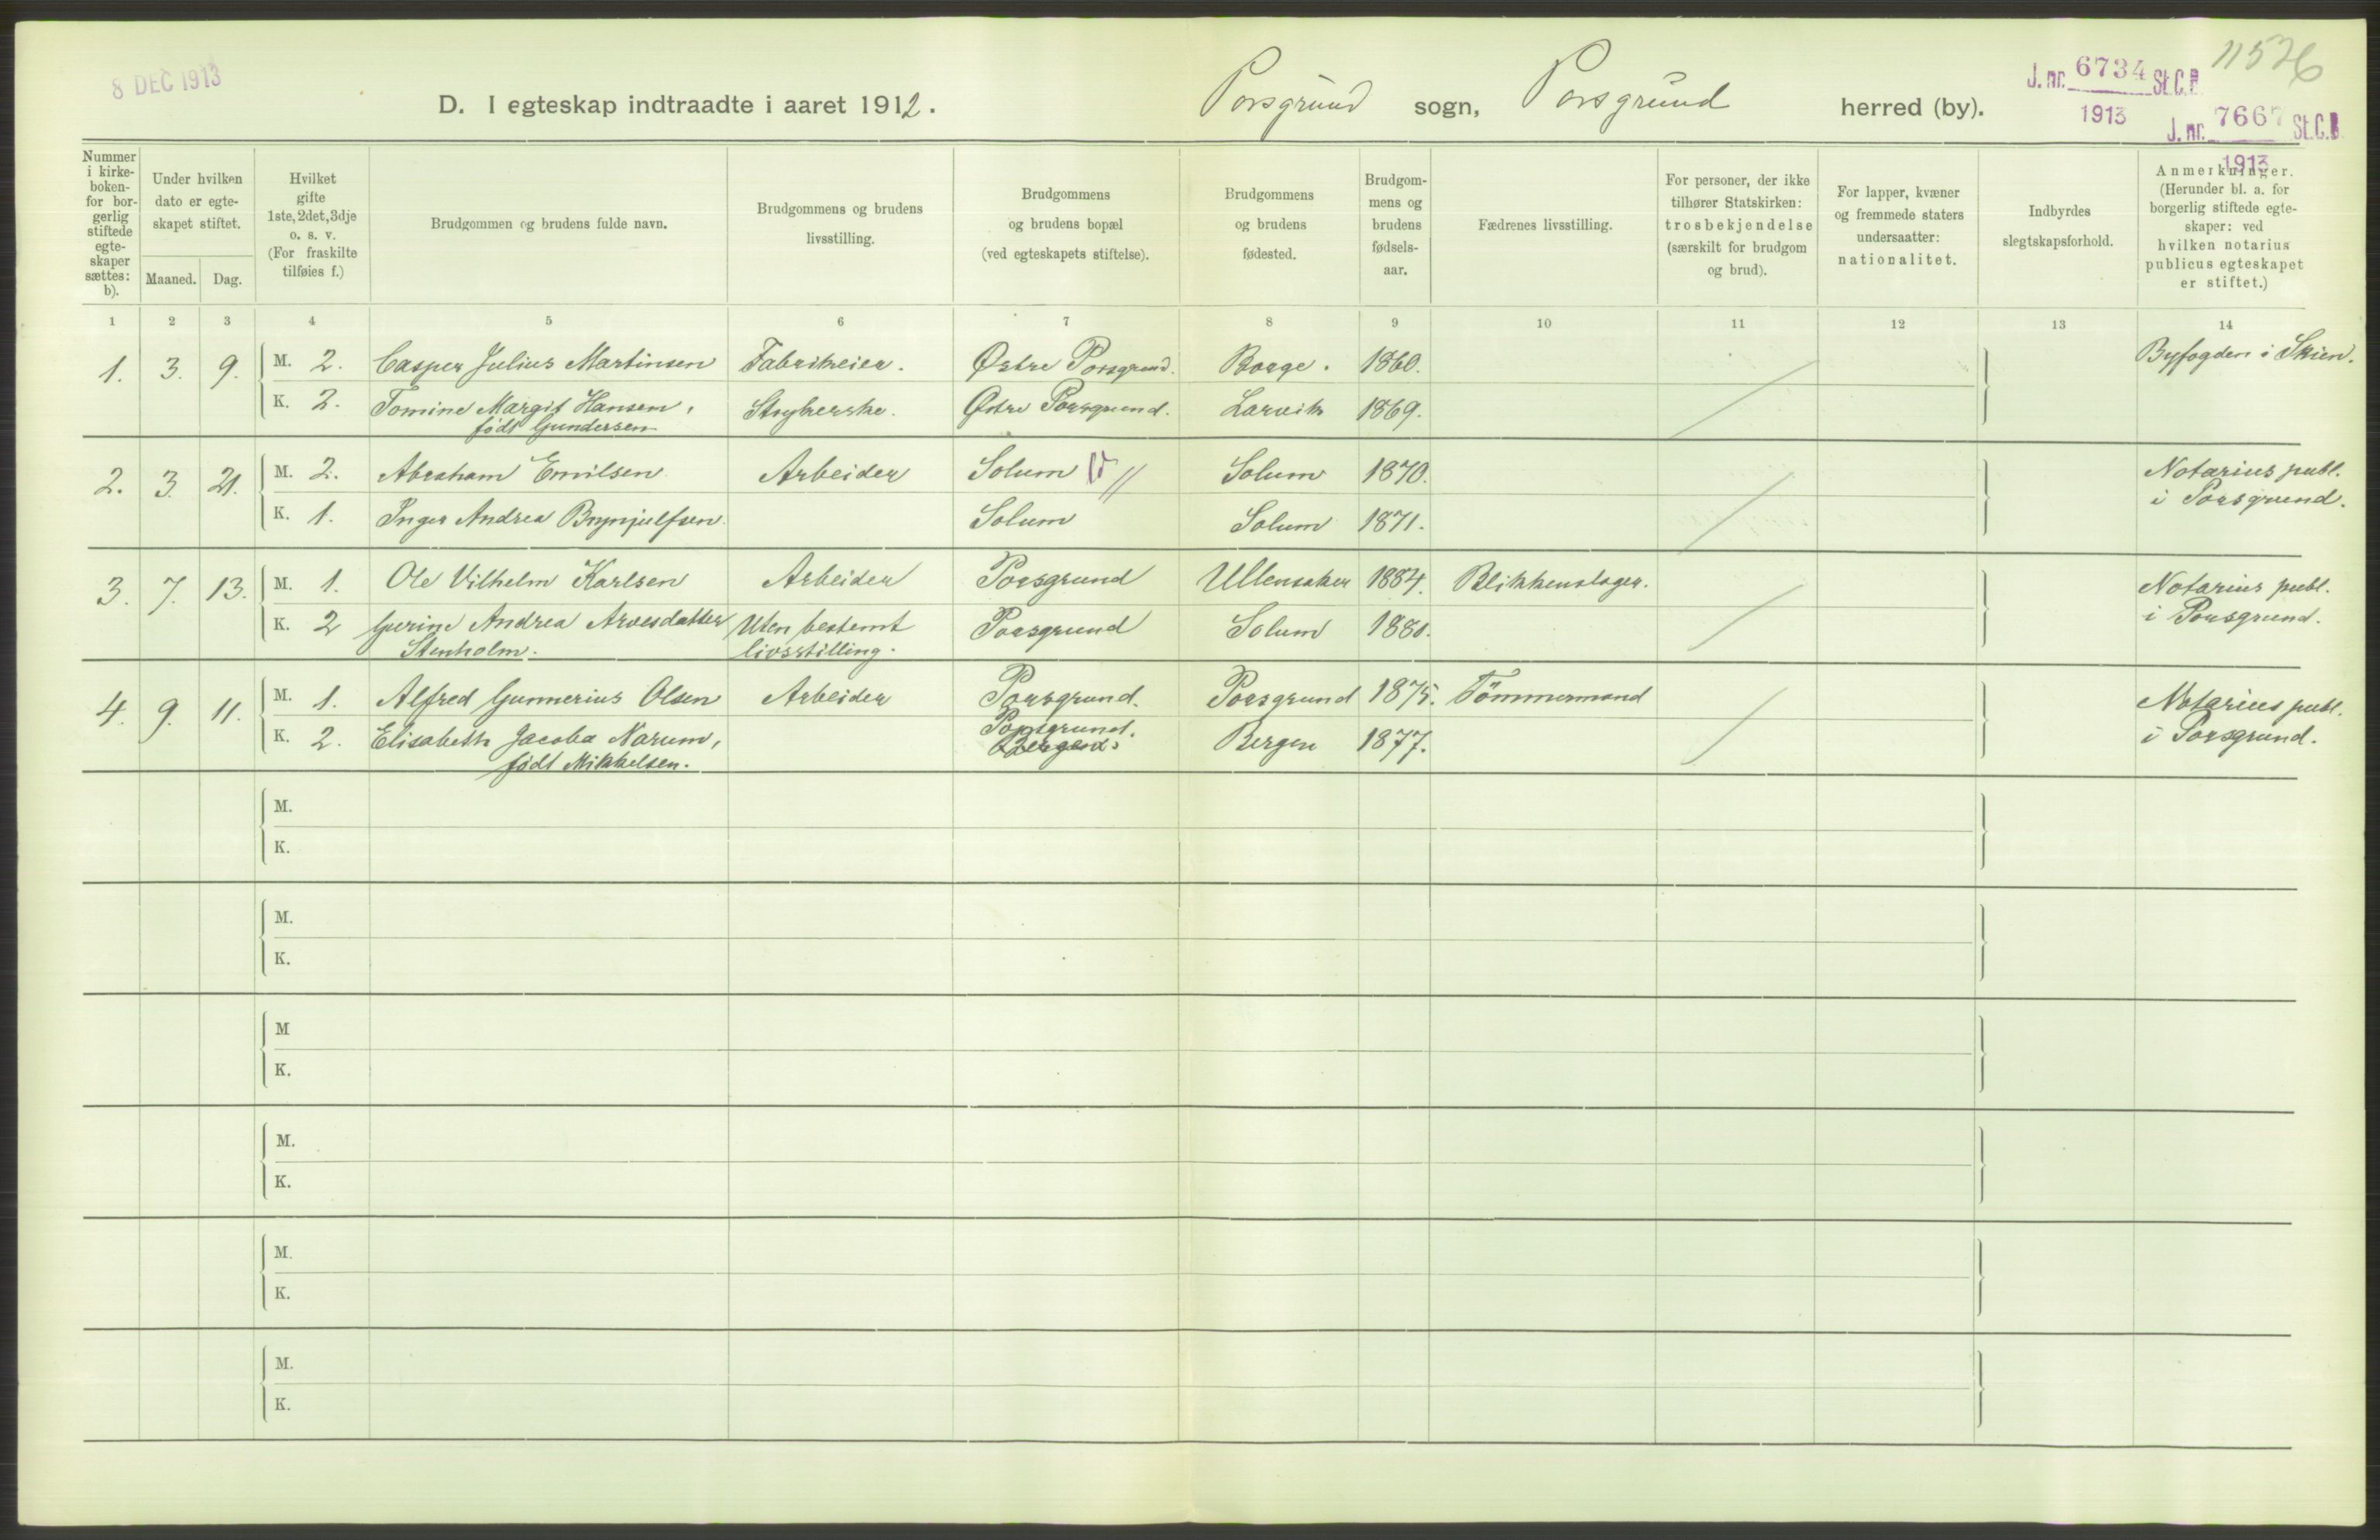 8 DEC 1913
D. I egteskap indtraadte i aaret 1912. Porsgrund sogn, Porsgrund herred (by).
J. nr. 6734 St. C. B.
1913
11526
J. nr. 7667 St. C. B.
1913
Nummer i kirke-boken- for bor-gerlig stiftede egte-skaper sættes: b).
Under hvilken dato er egte-skapet stiftet.
Maaned. Dag.
Hvilket gifte 1ste, 2det, 3dje o. s. v. (For fraskilte tilføies f.)
Brudgommen og brudens fulde navn.
Brudgommens og brudens livsstilling.
Brudgommens og brudens bopæl (ved egteskapets stiftelse).
Brudgommens og brudens fødested.
Brudgom-mens og brudens fødsels-aar.
Fædrenes livsstilling.
For personer, der ikke tilhører Statskirken: trosbekjendelse (særskilt for brudgom og brud).
For lapper, kvæner og fremmede staters undersaatter: nationalitet.
Indbyrdes slegtskapsforhold.
Anmerkninger. (Herunder bl. a. for borgerlig stiftede egte-skaper: ved hvilken notarius publicus egteskapet er stiftet.)
1 2 3 4 5 6 7 8 9 10 11 12 13 14
1. 3. 9. M. 2. Casper Julius Martinsen Fabrikeier. Østre Porsgrund. Borge. 1860. Byfogden i Skien.
K. 2. Tomine Margit Hansen, Strykerske. Østre Porsgrund. Larvik 1869.
født Gundersen
2. 3. 21. M. 2. Abraham Emilsen Arbeider Solum Solum 1870. Notarius publ.
i Porsgrund.
K. 1. Inger Andrea Brynjulfsen. Solum Solum 1871.
3. 7. 13. M. 1. Ole Vilhelm Karlsen Arbeider Porsgrund Ullensaker 1884. Blikkenslager. Notarius publ.
i Porsgrund.
K. 2 Gurine Andrea Arvesdatter Uten bestemt Porsgrund Solum 1880.
Stenholm. livsstilling.
4. 9. 11. M. 1. Alfred Gunnerius Olsen Arbeider Porsgrund. Porsgrund 1875. Tömmermand Notarius publ.
i Porsgrund.
Porsgrund.
K. 2. Elisabeth Jacoba Narum, Bergen Bergen 1877.
født Mikkelsen.
M.
K.
M.
K.
M
K.
M.
K.
M.
K.
M.
K.